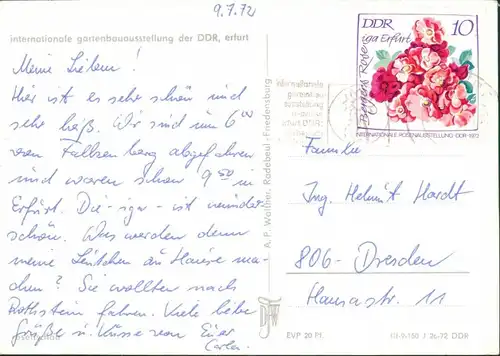 9.7.72
internationale gartenbauausstellung der DDR, erfurt
Meine Lieben!
Hier ist es sehr schön und
sehr heiß. Wir sind um 6 00
von Falkenberg abgefahren
und waren schon 9 50 in
Erfurt. Die - iga - ist wunder-
schön. Was werden denn
meine Leutchen zu Hause ma-
chen? Sie wollten nach
Rothstein fahren. Viele liebe
Grüße u. Küsse von Eurer
Carla.
A. P. Walther, Radebeul-Friedensburg
DDR 10
iga Erfurt
Bergers Rose
INTERNATIONALE ROSENAUSSTELLUNG DDR 1972
Internationale
erfurt DDR
Familie
Ing. Helmut Hardt
806 - Dresden
Hansastr. 11
EVP 20 Pf.
III-9-150 J 2c-72 DDR